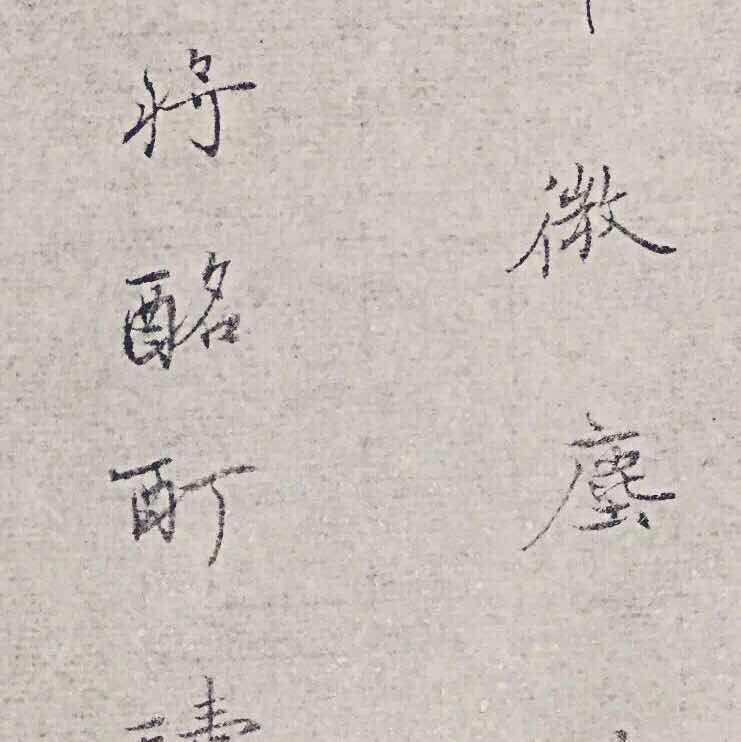 微塵
将酩酊